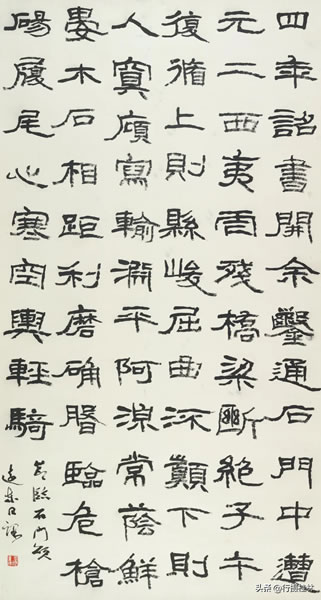 四年詔書開余鑿通石門中遭
元二西夷虐殘橋梁斷絕子午
復循上則縣峻屈曲流顛下則
入冥廎寫輸淵平阿湶常蔭鮮
晏木石相距利磨确臨危槍
碭履尾心寒空輿輕騎
臨石門頌
头条